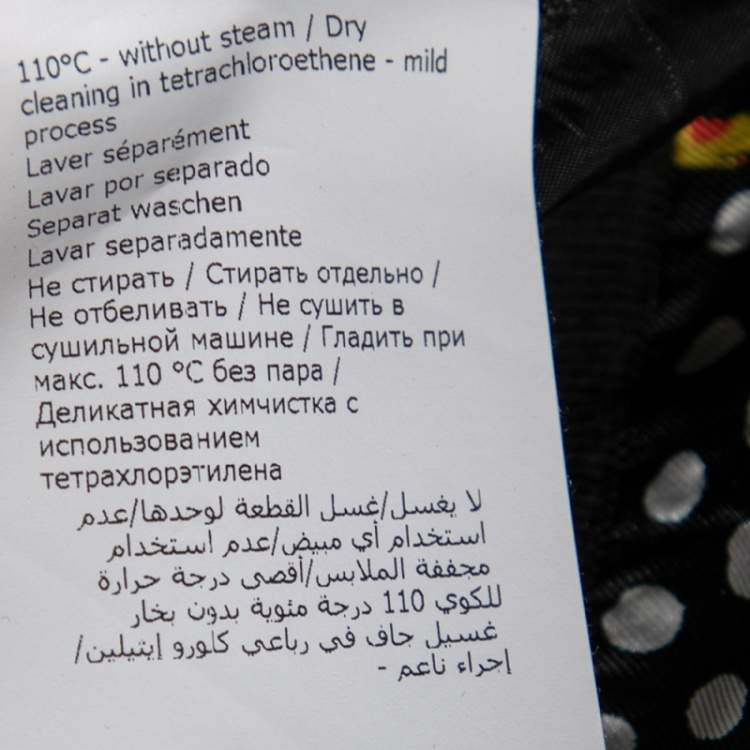 110°C - without steam / Dry
cleaning in tetrachloroethene - mild
process
Laver séparément
Lavar por separado
Separat waschen
Lavar separadamente
Не стирать / Стирать отдельно /
Не отбеливать / Не сушить в
сушильной машине / Гладить при
макс. 110 °C без пара /
Деликатная химчистка с
использованием
тетрахлорэтилена
لا يغسل/غسل القطعة لوحدها/عدم
استخدام أي مبيض/عدم استخدام
مجففة الملابس/أقصى درجة حرارة
للكوي 110 درجة مئوية بدون بخار
غسيل جاف في رباعي كلورو إيتيلين/
إجراء ناعم -